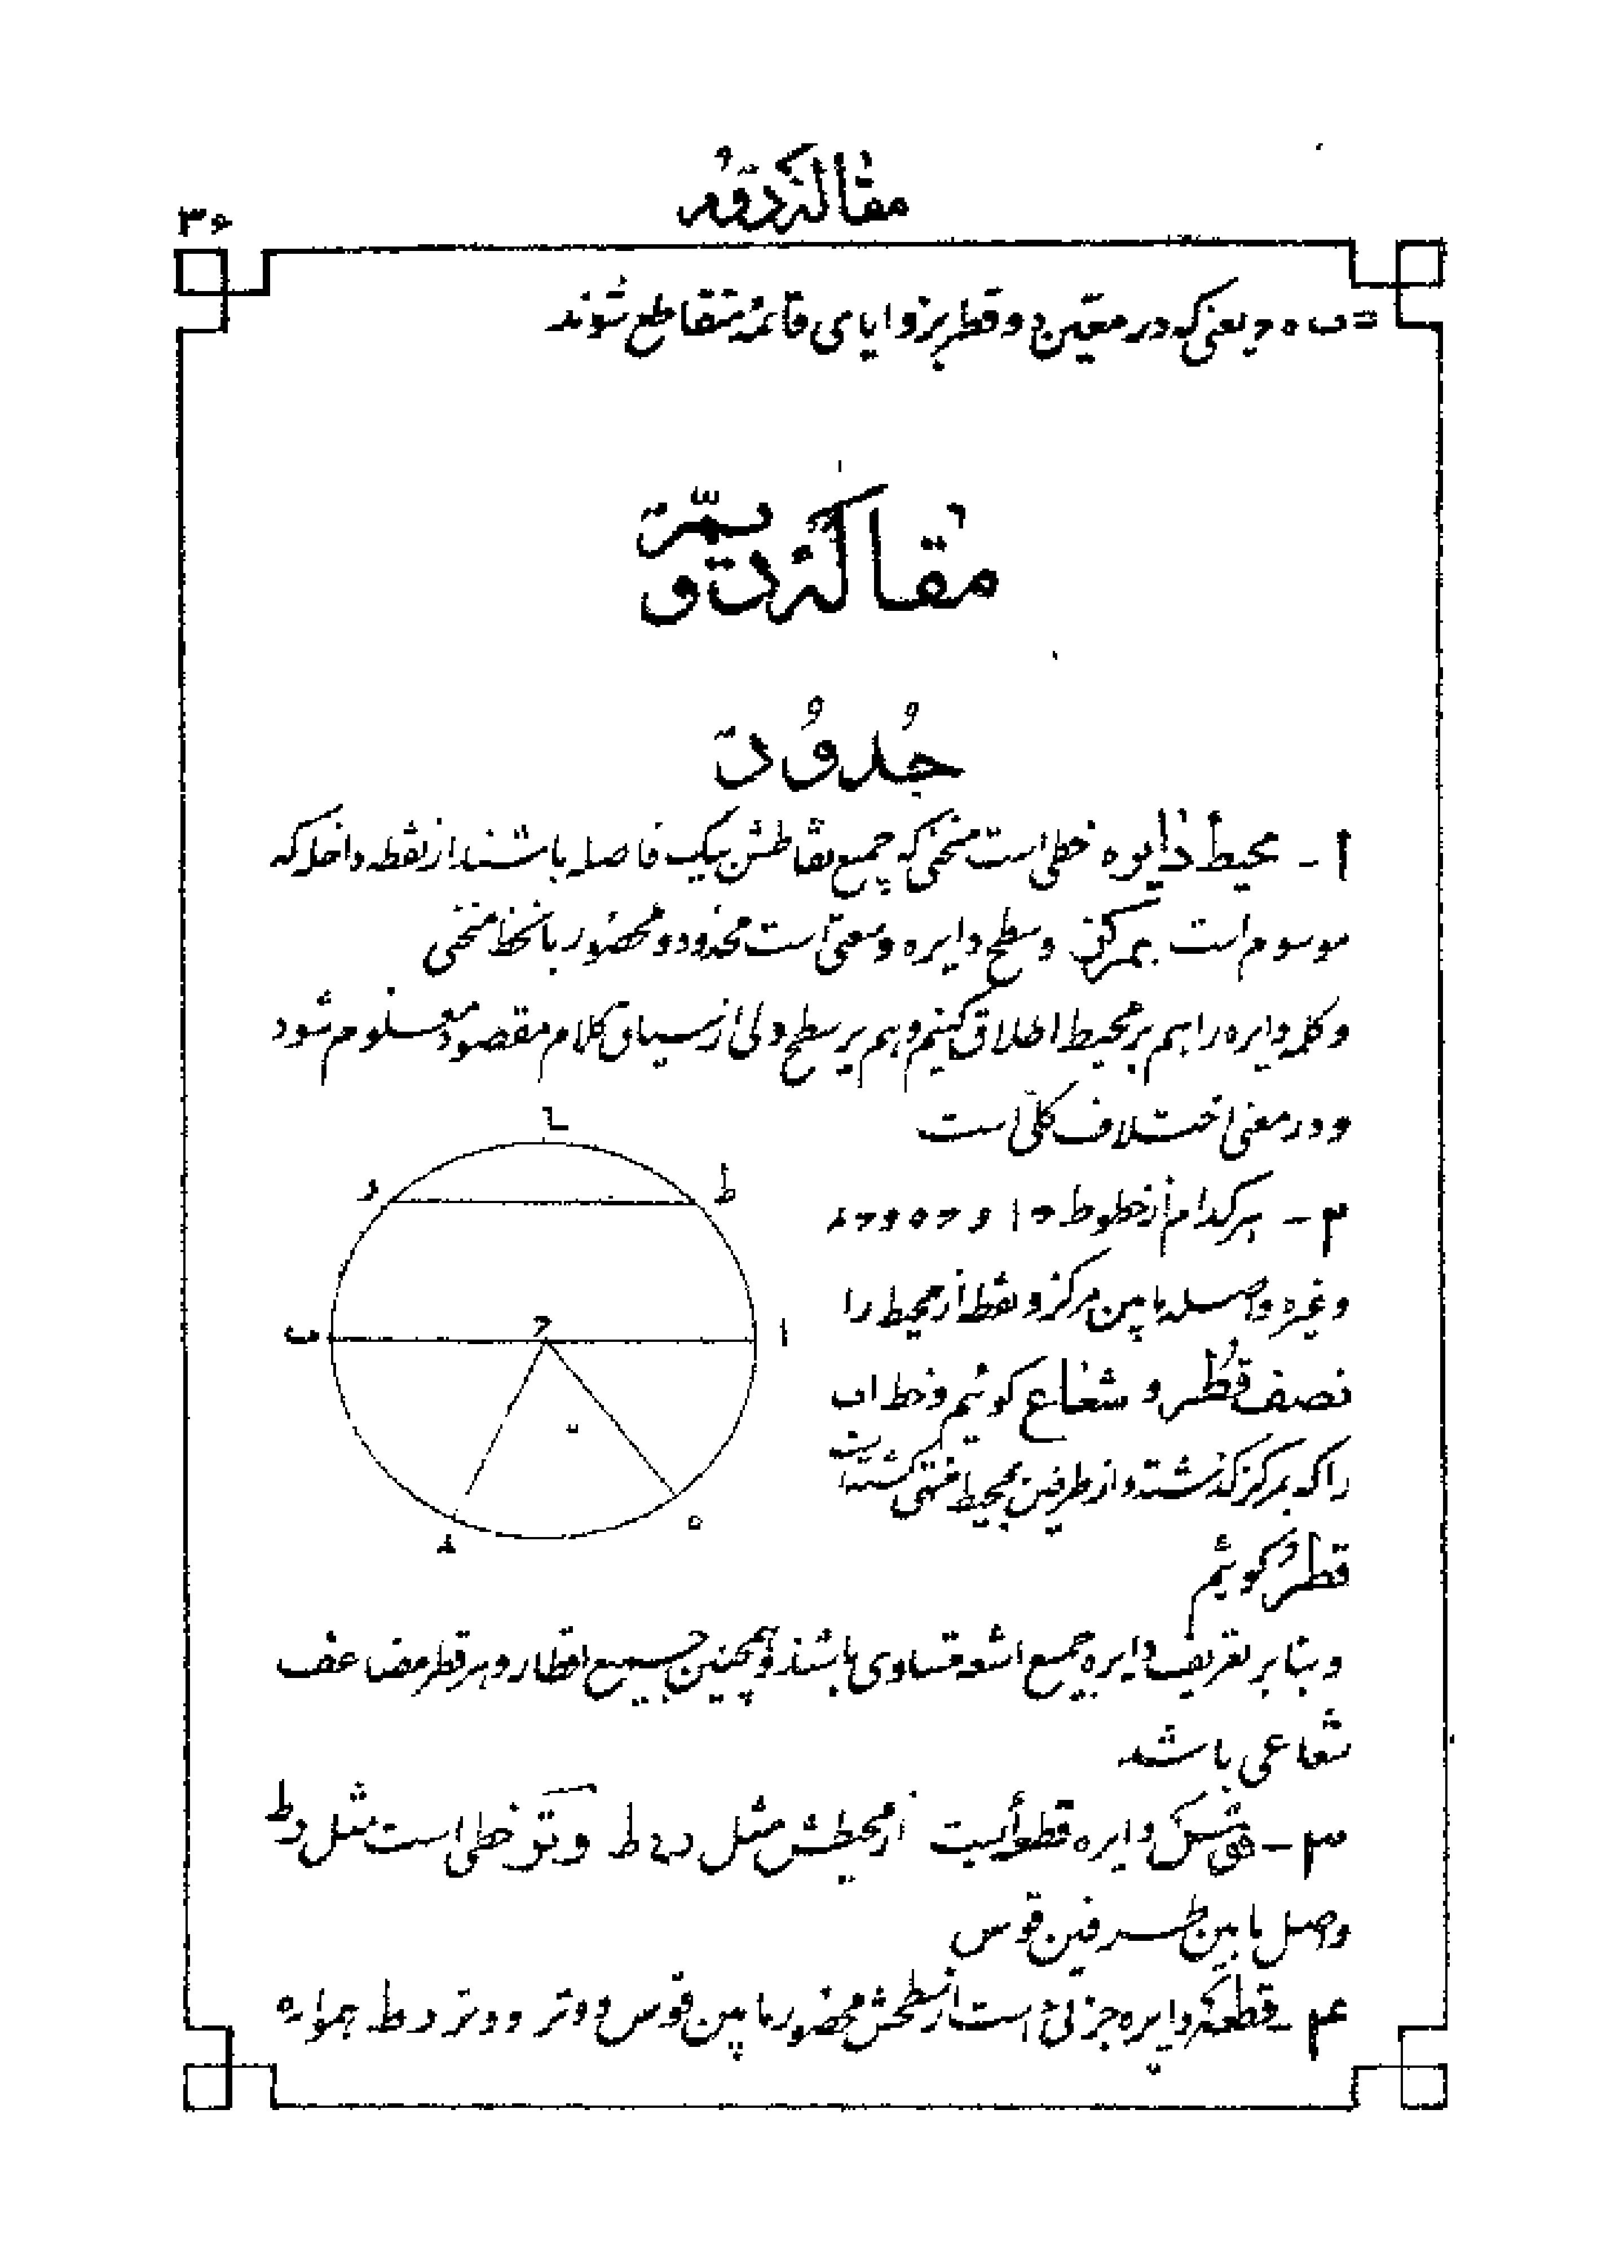 مقالهٔ دوم
۳۶
= ب ه ح یعنی که در معیّن دو قطر بزوایای قائمهٔ متقاطع شوند
مقالهٔ دویّم
حُدُود
۱ - محیط دایره خطی است منحنی که جمیع نقاطش بیک فاصله باشند از نقطه داخل که
موسوم است بمرکز و سطح دایره وسعتی است محدود و محصور بانخط منحنی
و کلمه دایره را هم بر محیط اطلاق کنیم و هم بر سطح ولی از سیاق کلام مقصود معلوم شود
و در معنی اختلاف کلّی است
۲ - هر کدام از خطوط ح ا و ح ه و ح ۸
و غیره واصله مابین مرکز و نقطه از محیط را
نصف قطر و شعاع گوئیم و خط اب
را که بمرکز گذشته و از طرفین بمحیط منتهی گشته است
قطر گوئیم
و بنا بر تعریف دایره جمیع اشعه متساوی باشند و همچنین جمیع اقطار و هر قطر مضاعف
شعاعی باشد
۳ - قوس دایره قطعه‌ایست از محیطش مثل د ر ط وتر خطی است مثل د ط
وصل مابین طرفین قوس
۴ - قطعهٔ دایره جزئی است از سطحش محصور مابین قوس و وتر و وتر د ط همواره
د
ط
ب
ح
ا
ه